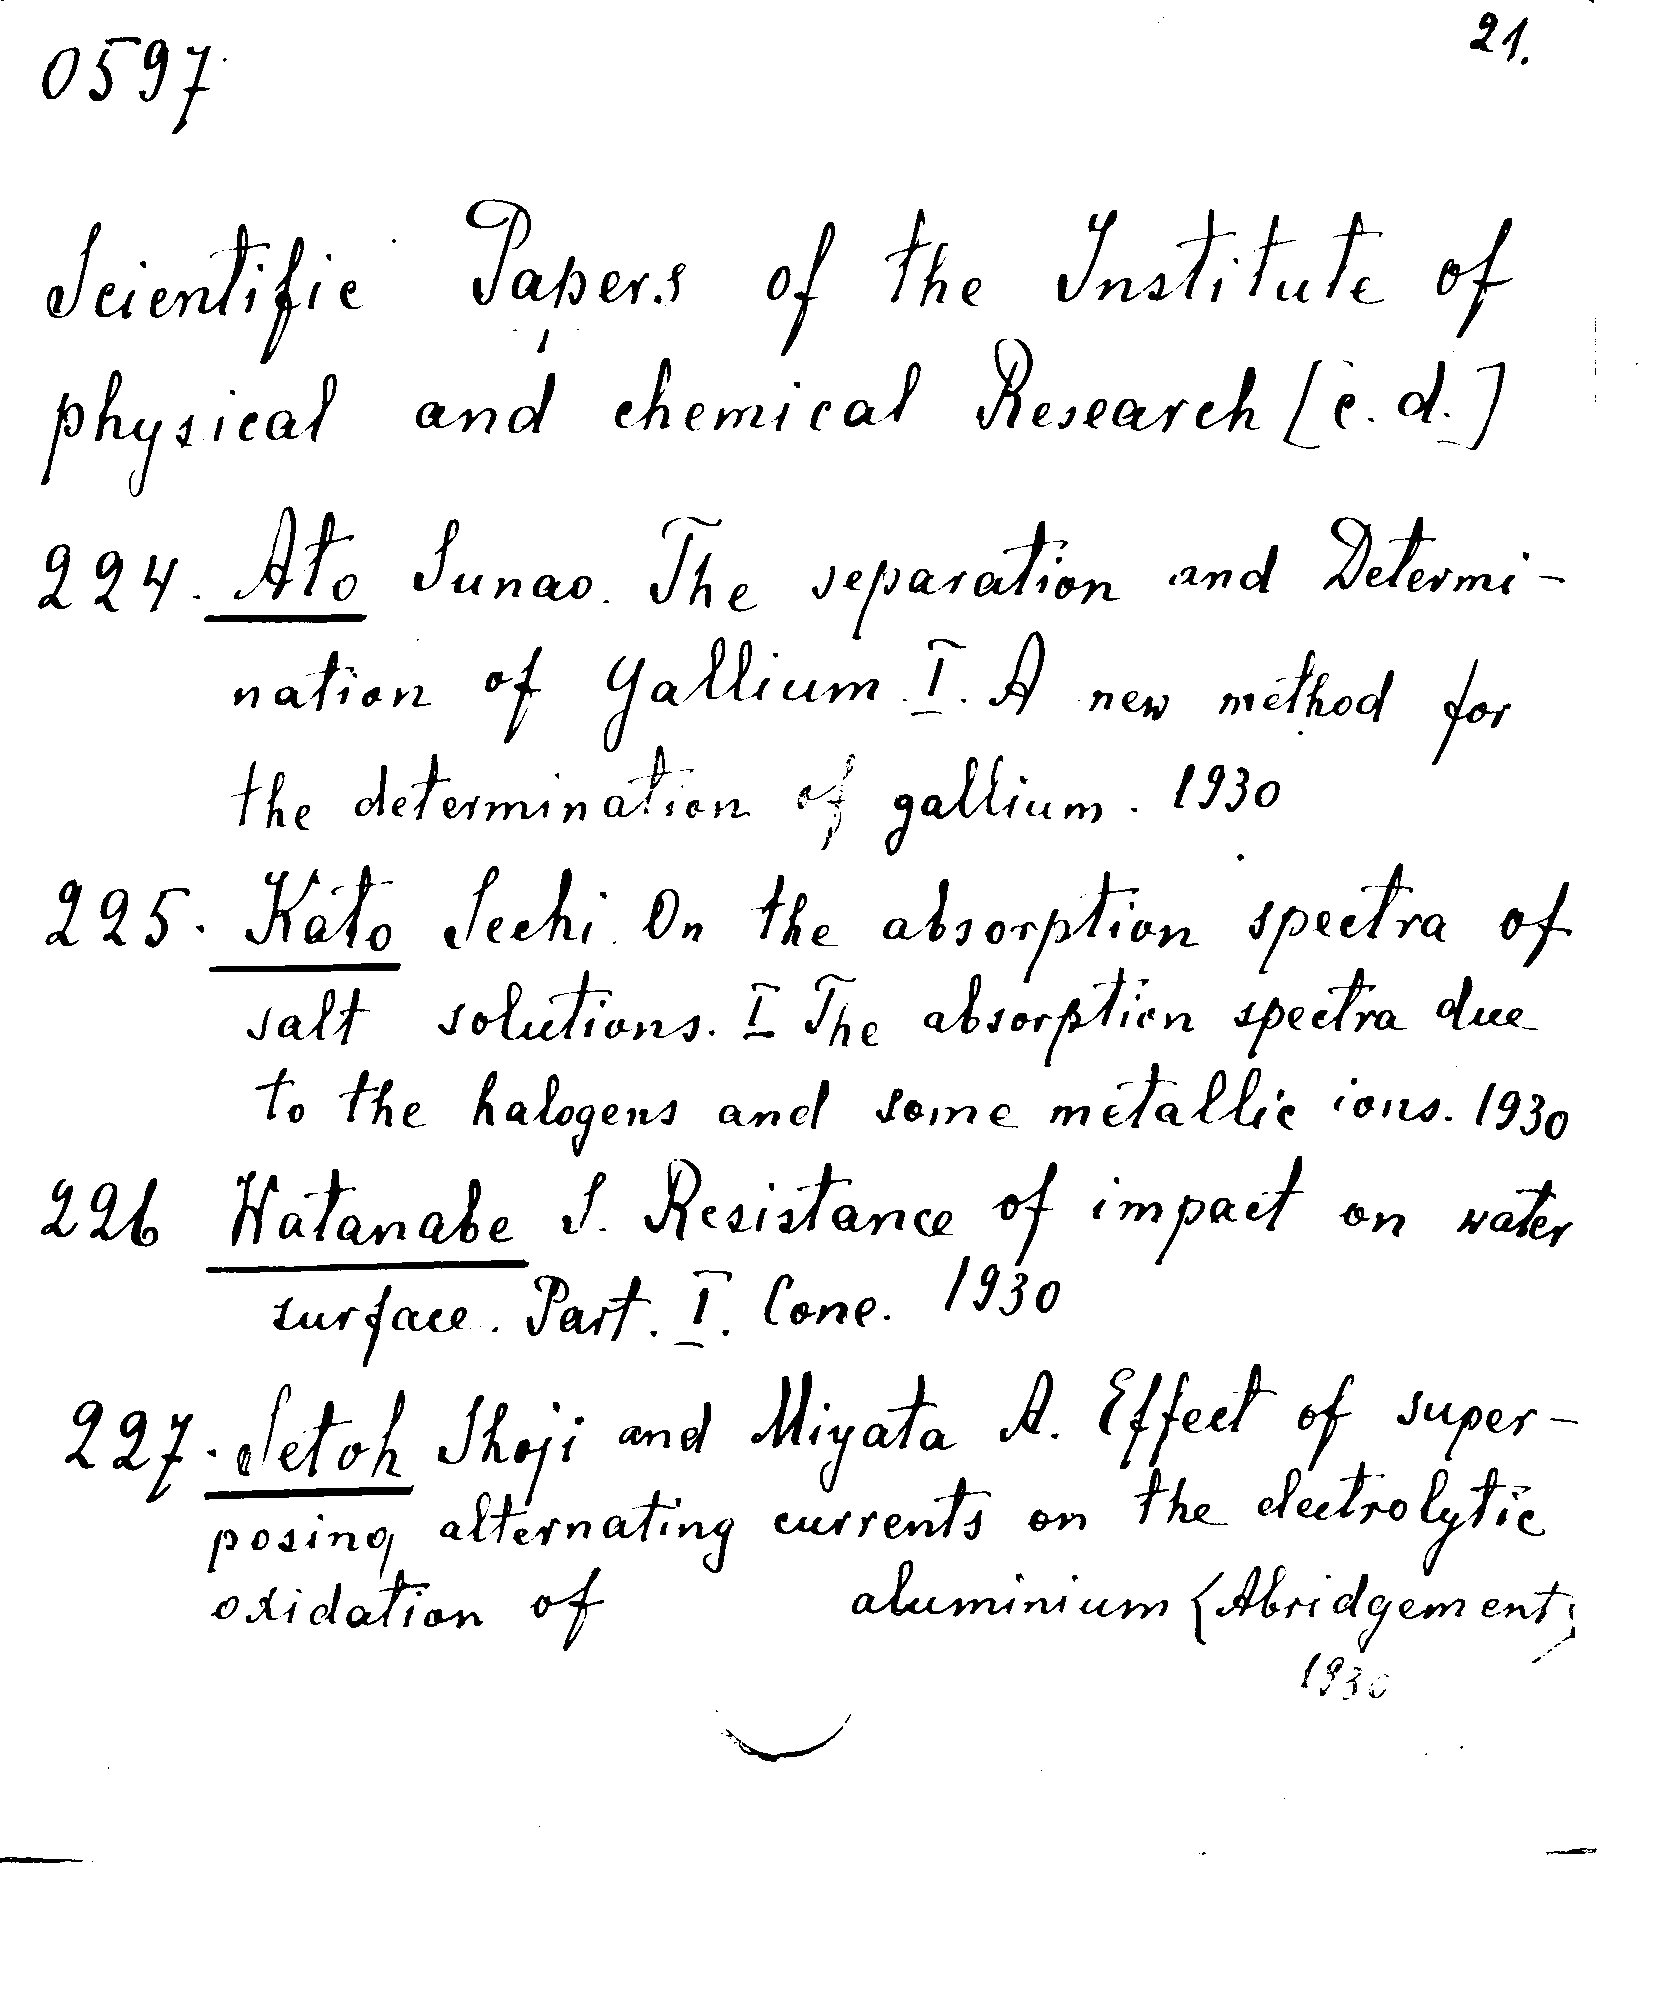 0597
21.
Scientific Papers of the Institute of
physical and chemical Research [c.d.]
224. Ato Sunao. The separation and Determi-
nation of Gallium. I. A new method for
the determination of gallium. 1930
225. Kato Sechi. On the absorption spectra of
salt solutions. I The absorption spectra due
to the halogens and some metallic ions. 1930
226 Watanabe S. Resistance of impact on water
surface. Part. I. Cone. 1930
227. Setoh Shoji and Miyata A. Effect of super-
posing alternating currents on the electrolytic
oxidation of aluminium (Abridgement)
1930